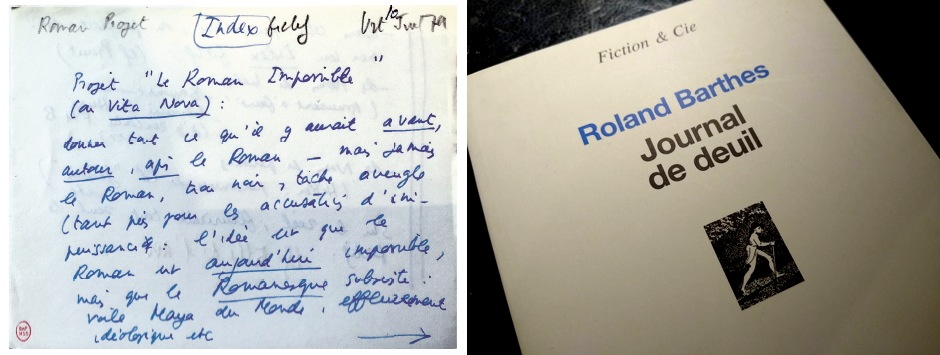 Roman Projet
Index
Projet "Le Roman Impossible"
(ou Vita Nova) :
donner tout ce qu'il y aurait avant,
autour, le Roman — mais jamais
le Roman, trou noir, tâche aveugle
(tant pis pour les accusations d'im-
puissance : l'idée est que le
Roman est aujourd'hui impossible,
mais que le Romanesque subsiste :
voile Maya du Monde, effleurement
idéologique etc
Fiction & Cie
Roland Barthes
Journal
de deuil